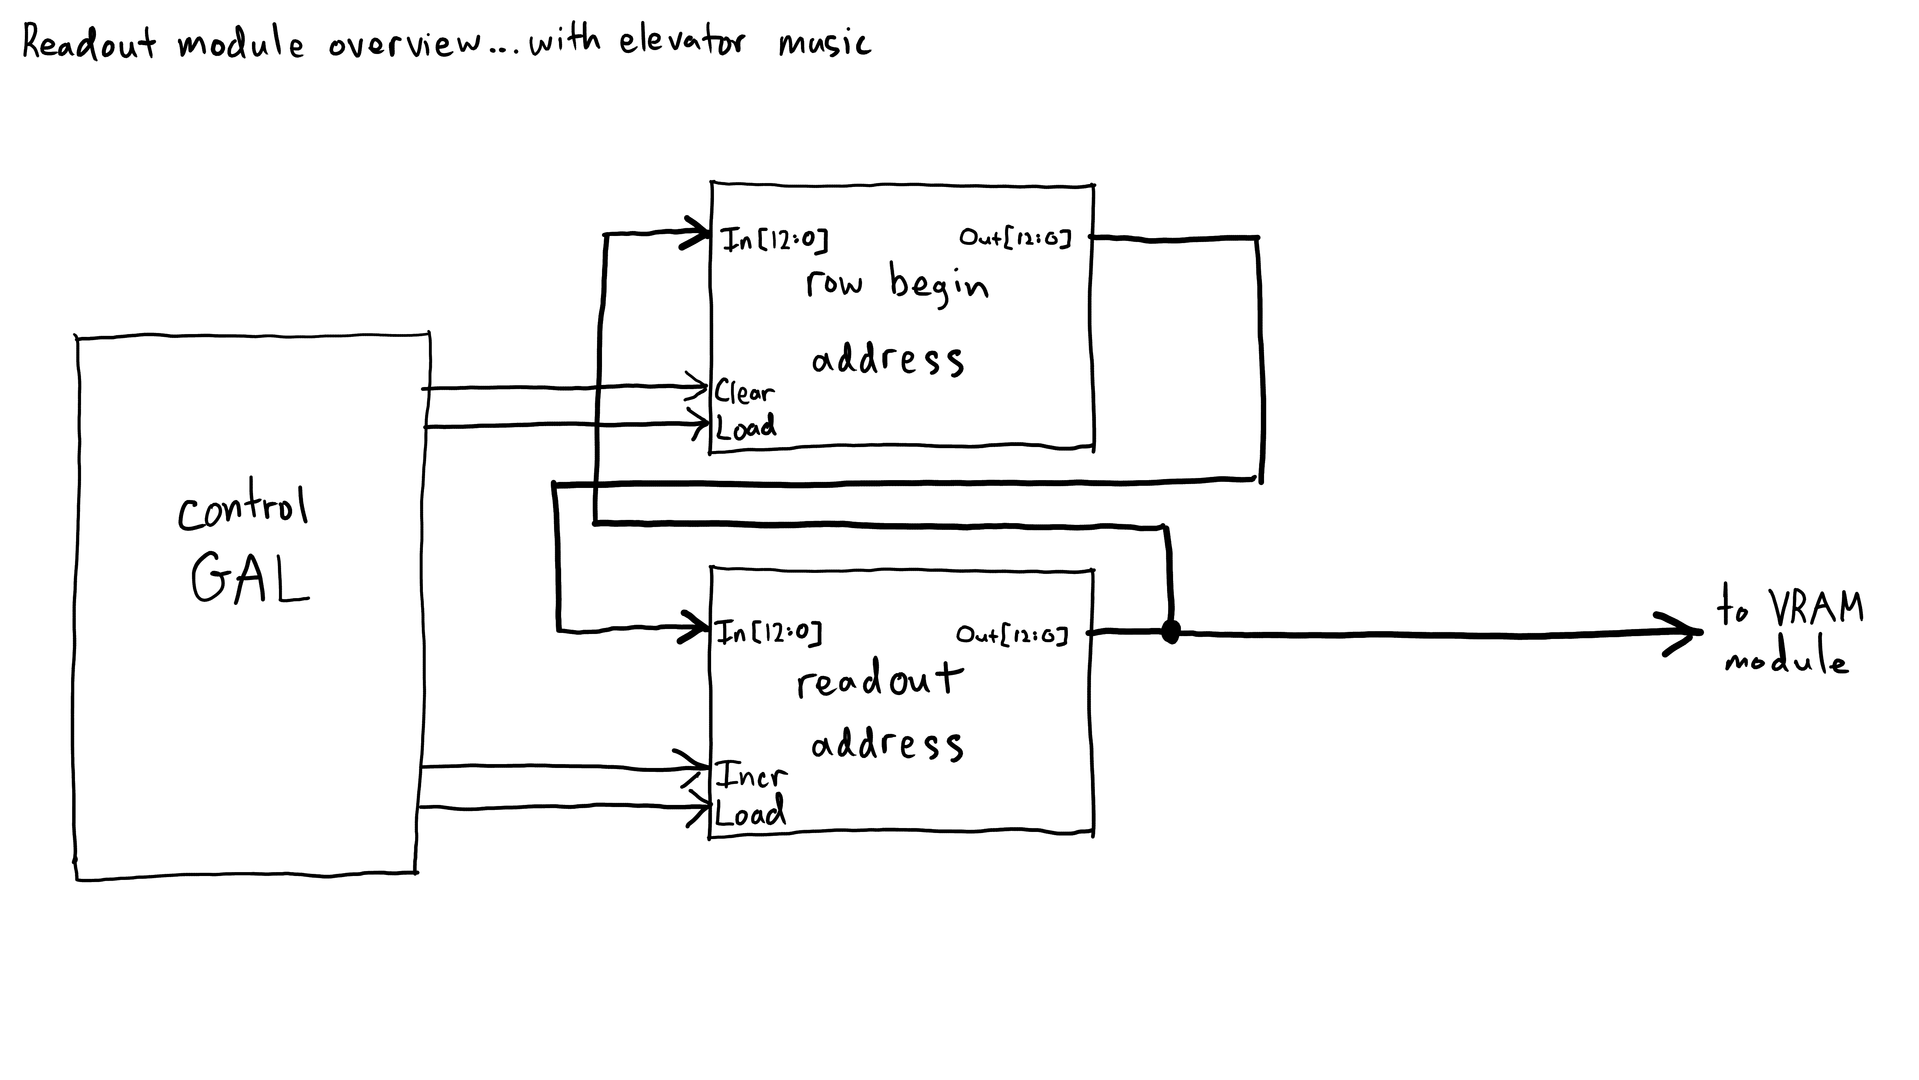 Readout module overview...with elevator music
In[12:0] Out[12:0]
row begin
address
Clear
Load
control
GAL
In[12:0] Out[12:0]
readout
address
Incr
Load
to VRAM
module